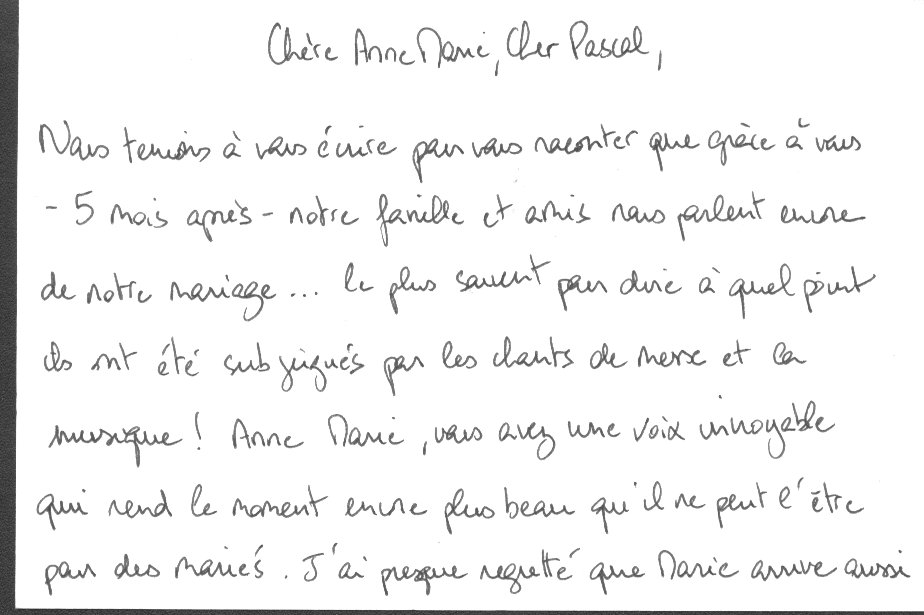 Chère Anne Marie, Cher Pascal,
Nous tenions à vous écrire pour vous raconter que grâce à vous
- 5 mois après - notre famille et amis nous parlent encore
de notre mariage... le plus souvent pour dire à quel point
ils ont été subjugués par les chants de messe et la
musique ! Anne Marie, vous avez une voix incroyable
qui rend le moment encore plus beau qu'il ne peut l'être
pour des mariés. J'ai presque regretté que Marie arrive aussi